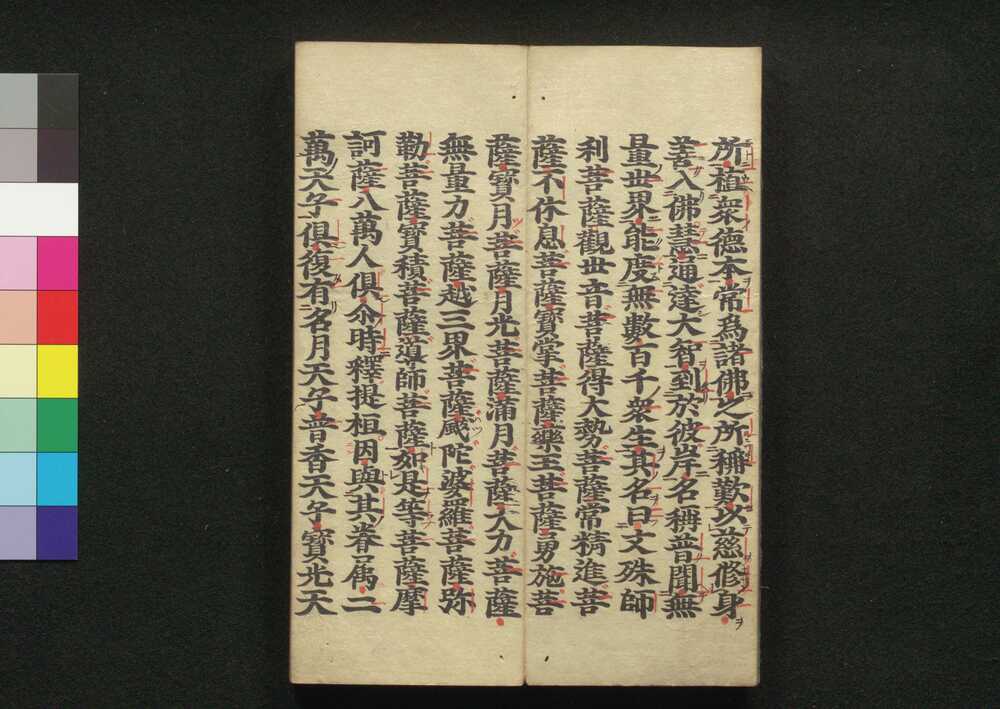 所植衆德本常為諸佛之所稱歎以慈修身
善入佛慧通達大智到於彼岸名稱普聞無
量世界能度無數百千衆生其名曰文殊師
利菩薩觀世音菩薩得大勢菩薩常精進菩
薩不休息菩薩寶掌菩薩藥王菩薩勇施菩
薩寶月菩薩月光菩薩滿月菩薩大力菩薩
無量力菩薩越三界菩薩颰陀婆羅菩薩弥
勒菩薩寶積菩薩導師菩薩如是等菩薩摩
訶薩八萬人俱尒時釋提桓因與其眷属二
萬天子俱復有名月天子普香天子寶光天